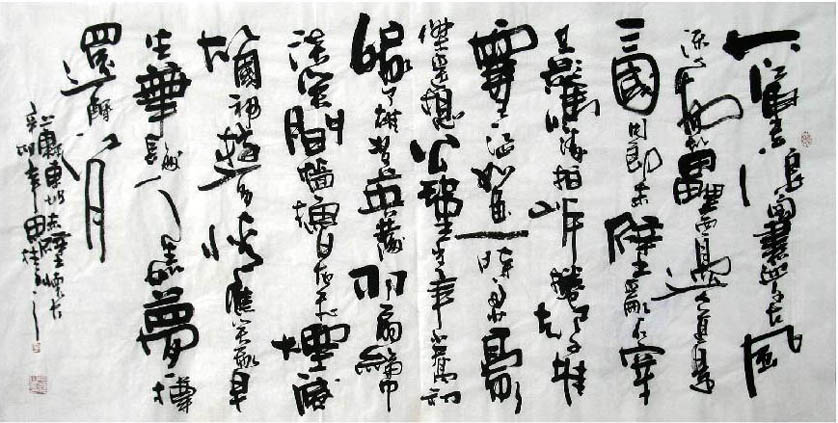 大江東去浪淘盡千古風
流人物故壘西邊人道是
三國周郎赤壁亂石穿
空驚濤拍岸捲起千堆
雪江山如畫一時多少豪
傑遙想公瑾當年小喬初
嫁了雄姿英發羽扇綸巾
談笑間檣櫓灰飛煙滅
故國神遊多情應笑我早
生華髮人生如夢一樽
還酹江月
蘇東坡赤壁懷古
辛卯年